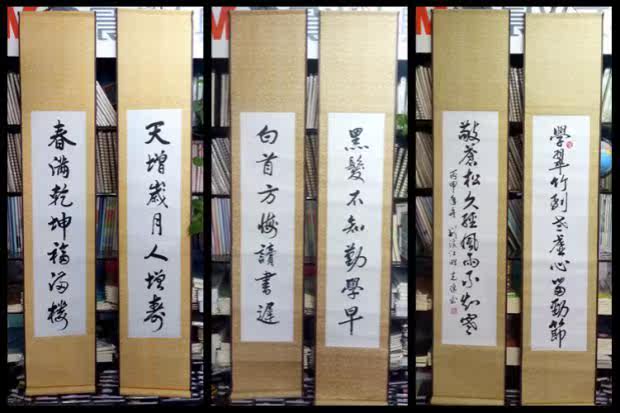 天增歲月人增壽
春滿乾坤福滿樓
黑髮不知勤學早
白首方悔讀書遲
學翠竹到老虛心留勁節
敬蒼松久經風雨不知寒
丙申年